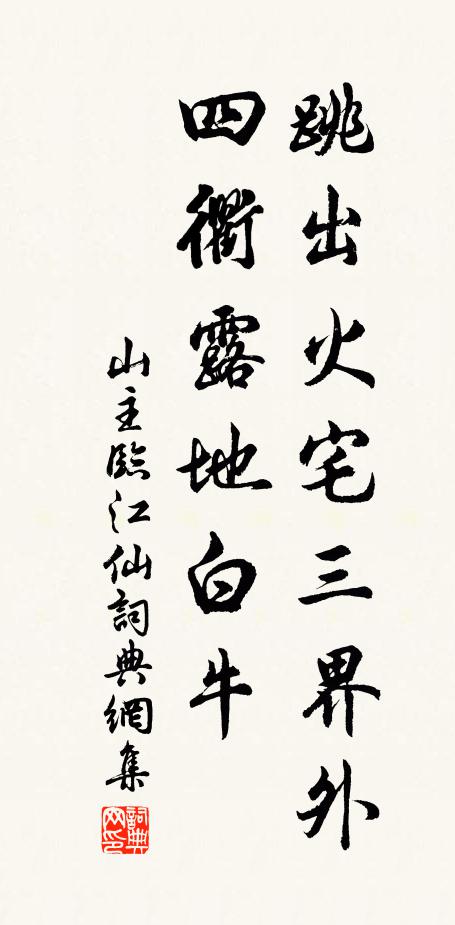 跳出火宅三界外
四衢露地白牛
山主臨江仙詞典網集
詞典
网印